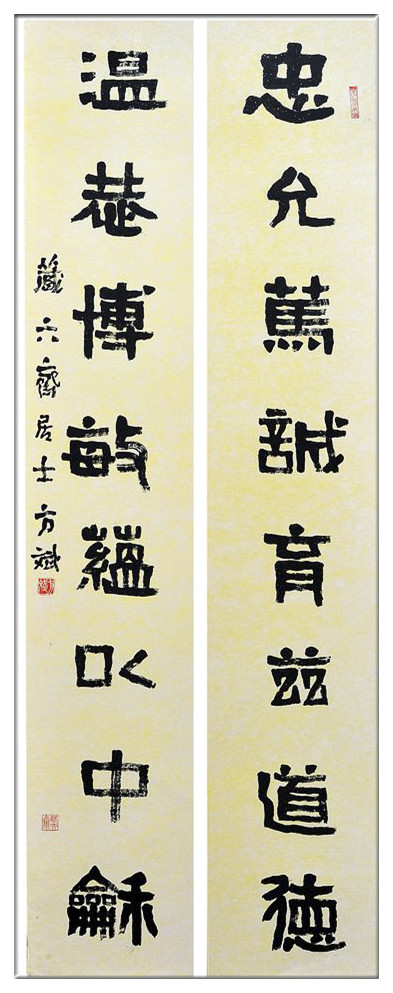 忠允篤誠育茲道德
溫恭博敏蘊以中龢
藏六齋居士方斌